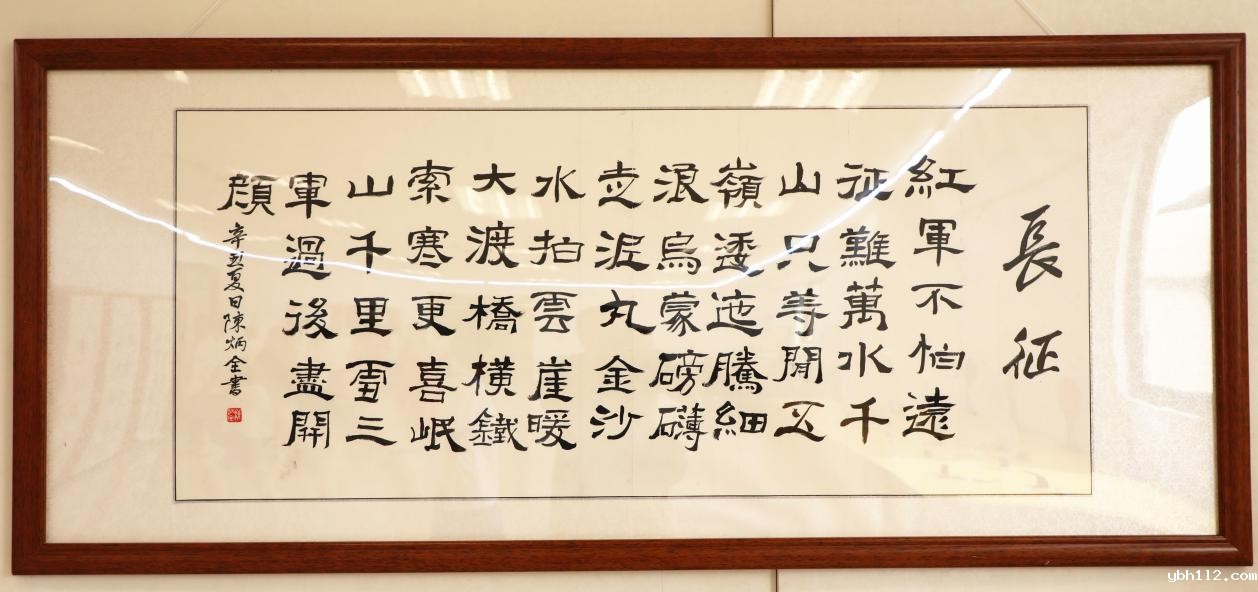 長征
紅軍不怕遠
征難萬水千
山只等閒五
嶺逶迤騰細
浪烏蒙磅礴
走泥丸金沙
水拍雲崖暖
大渡橋橫鐵
索寒更喜岷
山千里雪三
軍過後盡開
顏
辛丑夏日陳炳全書
ybh112.com